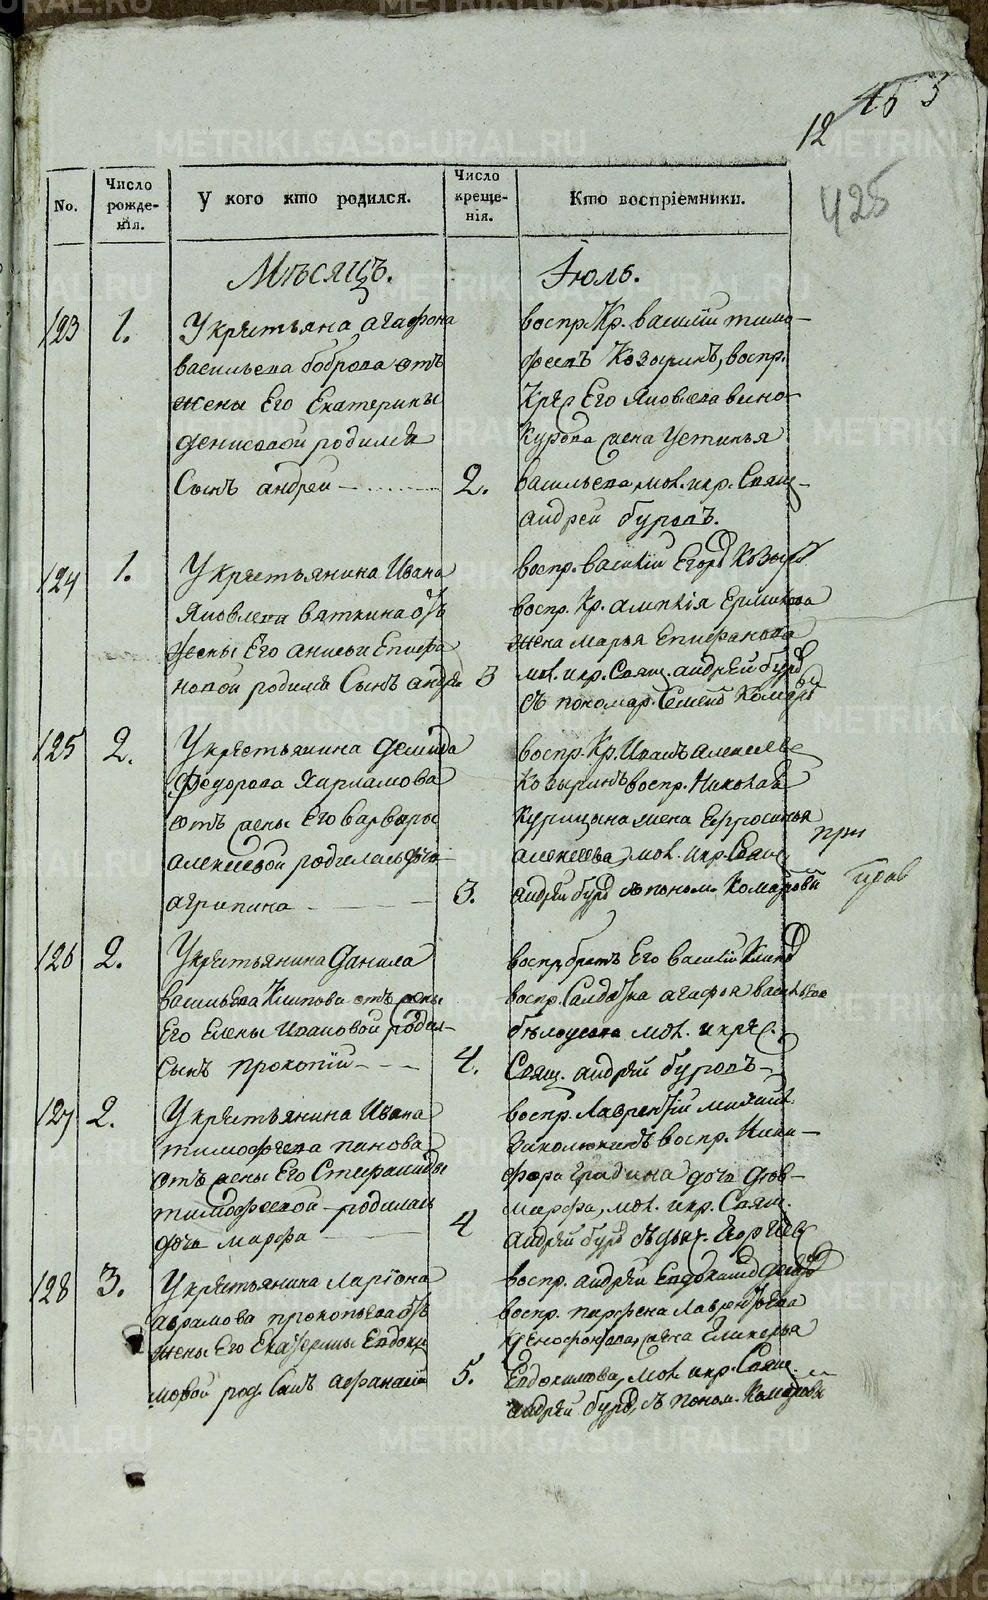 12
425
No.
Число рожде-нія.
У кого кто родился.
Число креще-нія.
Кто воспріемники.
Мѣсяцъ.
Іюль.
123
1.
У крестьяна агафона
васильева боброва отъ
жены Его Екатерины
денисовой родился
Сынъ андрей
2.
воспр. Кр. василій тимо-
феевъ Козыринъ, воспр.
Кре Его Яковлева вино-
курова жена Устинья
васильева, мол. и кр. Свящ-
андрей буровъ.
124
1.
У крестьянина Ивана
Яковлева вяткина отъ
жены Его анисьи Епифа
новой родился Сынъ андрей
3
воспр. василій Егоро Козыр
воспр. Кр. Ермакова
жена марья Епифанова
мол. и кр. Свящ. андрей буро
съ пономар. Семено Комаро
125
2.
У крестьянина демида
Федорова Харламова
отъ жены Его варвары
алексеевой родилась дочь
агрипина
3.
воспр. Кр. Иванъ алексеев
Козыринъ воспр. Николая
Курицына жена Ефросинья
алексеева, мол. и кр. Свящ.
андрей буро съ поном. Комаровы
при
126
2.
У крестьянина данила
васильева Климова отъ жены
Его Елены Ивановой родил-
Сынъ прокопій
4.
воспр. братъ Его василій Климо
воспр. Салдатка агафья васильева
мол. и кре.
Свящ. андрей буровъ
127
2.
У крестьянина Ивана
тимофеева панова
отъ жены Его Стефаниды
тимофеевой родилась
дочь марфа
4
воспр. Лаврентій михайл
воспр. Ники-
фора дочь дев-
марфа, мол. и кр. Свящ.
андрей буро съ
128
3.
У крестьянина Ларіона
аврамова прокопьева отъ
жены Его Екатерины Евдоки
мовой род. Сынъ афанасій
5.
воспр. андрей Евдокимо
воспр. парфена Лаврентьева
жена Гликерья
Евдокимова, мол. и кр. Свящ.
андрей буро, съ поном. Комаровы
METRIKI.GASO-URAL.RU